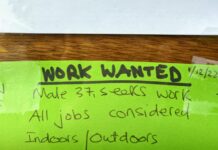 WORK WANTED
Male 37, seeks work
All jobs considered
Indoors/outdoors